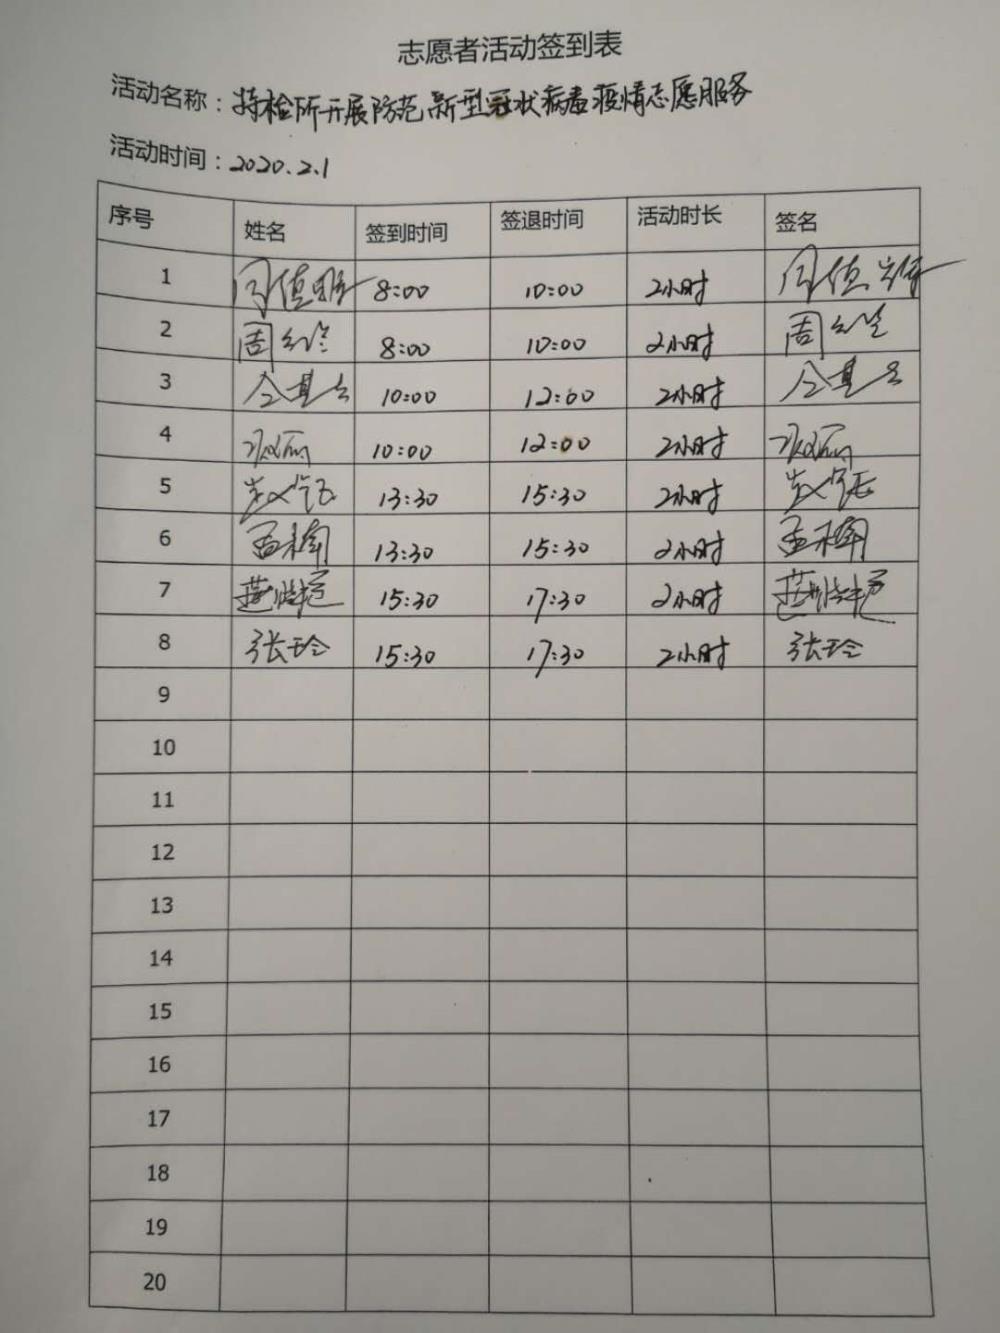 志愿者活动签到表
活动名称：特检所开展防范新型冠状病毒疫情志愿服务
活动时间：2020.2.1
序号 姓名 签到时间 签退时间 活动时长 签名
1 8:00 10:00 2小时
2 周 8:00 10:00 2小时 周
3 10:00 12:00 2小时
4 10:00 12:00 2小时
5 13:30 15:30 2小时
6 13:30 15:30 2小时
7 15:30 17:30 2小时
8 张玲 15:30 17:30 2小时 张玲
9
10
11
12
13
14
15
16
17
18
19
20